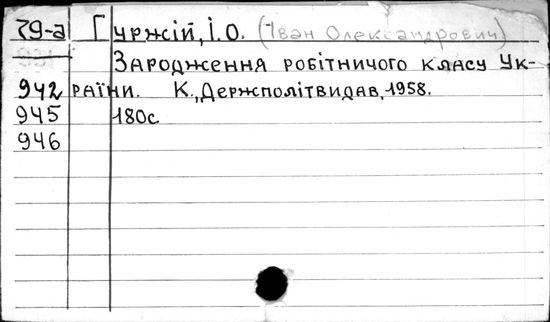 79-а Гуржій, І.О. (Іван Олександрович)
Зародження робітничого класу Ук-
942 раїни. К., Держполітвидав, 1958.
945 180с
946